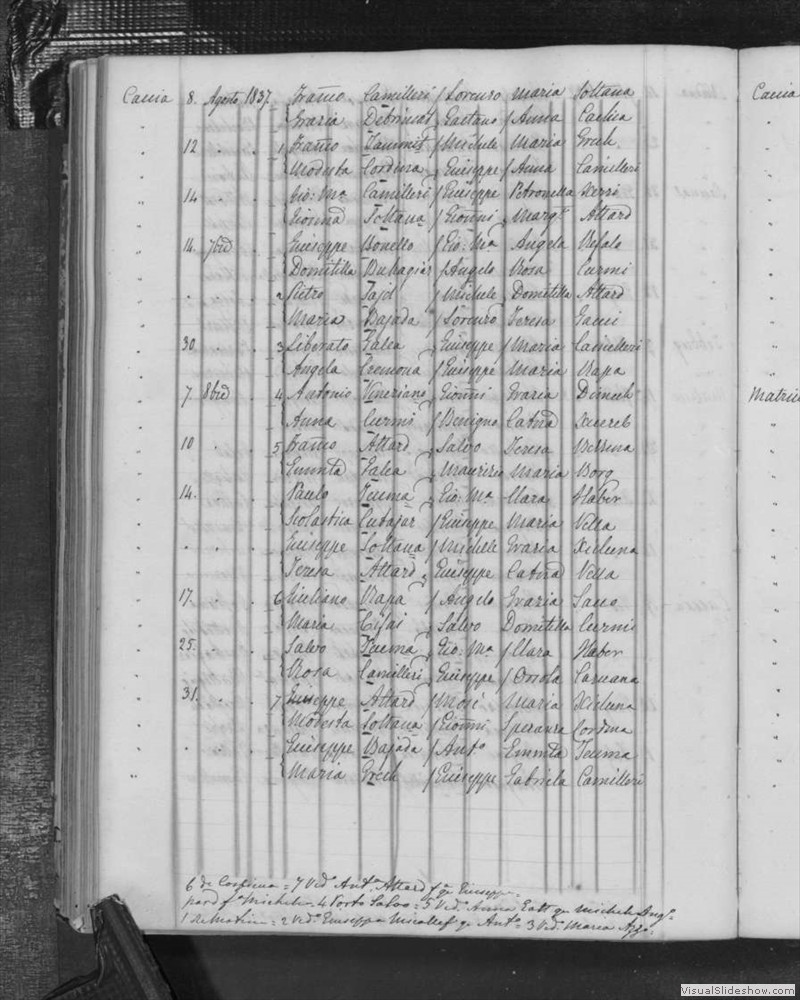 Caccia 8. Agosto 1837 Franco Camilleri / Lorenzo Maria Soltana Caccia
Grazia Debrincat Gaetano / Anna Cachia
12 1 Franco Tammit / Michele Maria Grech
Modesta Cordina Giuseppe / Anna Camilleri
14 Gio: Ma Camilleri / Giuseppe Petronella Xerri
Gionna Soltana / Gionni Marga Attard
14 7bre Giuseppe Bonello / Gio: Ma Angela Refalo
Domitilla Buhagiar / Angelo Rosa Curmi
2 Pietro / Michele Domitilla Attard
Maria Bajada / Lorenzo Teresa Gauci
30 3 Liberato Galea Giuseppe / Maria Camilleri
Angela Cremona / Giuseppe Maria Rapa
7 8bre 4 Antonio Veneziano Gionni Grazia Dimech Matrice
Anna Curmi / Benigno Catna Xuereb
10 5 Franco Attard Salvo Teresa
Galea Maurizio Maria Borg
14. Paulo Teuma Gio: Ma Clara Haber
Scolastica Cutajar / Giuseppe Maria Vella
Giuseppe Soltana / Michele Grazia Xicluna
Teresa Attard Giuseppe Catna Vella
17. 6 Giuliano Rapa / Angelo Grazia
Maria Salvo Domitilla Curmi
25. Salvo Teuma Gio: Ma / Clara Haber
Rosa Camilleri Giuseppe / Orsola Caruana
31. 7 Giuseppe Attard / Mosi Maria Xicluna
Modesta Soltana / Gionni Speranza Cordina
Giuseppe Bajada / Anto Teuma
Maria Grech / Giuseppe Gabriela Camilleri
6 di Cospicua = 7 Vedo Anta Attard fa Giuseppe.
Michele 4 Porto Salvo = 5 Vedo Anna qm Michelang.o
1 = 2 Vedo Giuseppa Micallef qm Anto = 3 Ved. Maria
VisualSlideshow.com